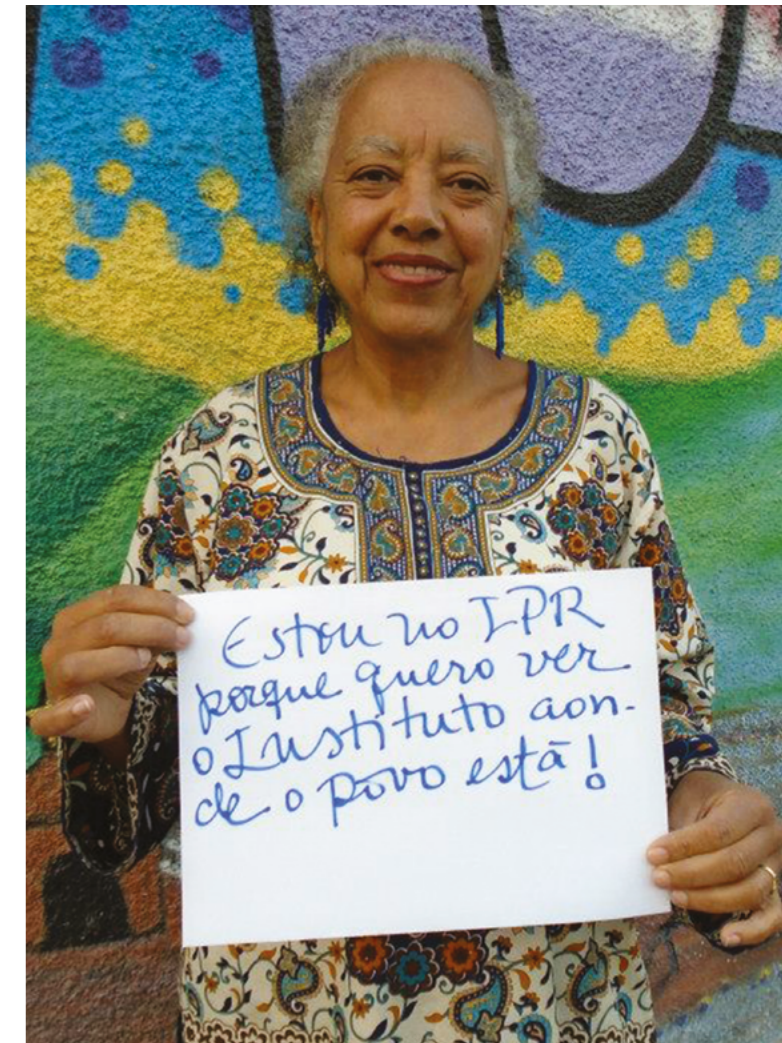 Estou no IPR
porque quero ver
o Instituto aon-
de o povo está!